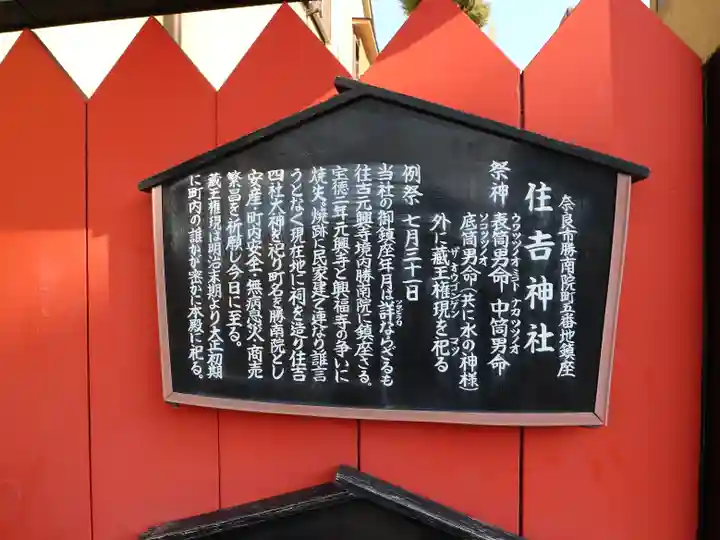 奈良市勝南院町五番地鎮座
住吉神社
ウワツツノオミコト ナカツツノオ
祭神 表筒男命 中筒男命
ソコツツノオ
底筒男命（共に水の神様）
ザオウゴンゲン マツ
外に蔵王権現を祀る
例祭 七月三十一日
ツマビラカ
当社の御鎮座年月は詳ならざるも
住吉元興寺境内勝南院に鎮座さる。
宝徳三年元興寺と興福寺の争いに
焼失。焼跡に民家建ち連なり誰言
うとなく現在地に祠を造り住吉
四社大神を祀り町名を勝南院とし
安産・町内安全・無病息災・商売
繁昌を祈願し今日に至る。
蔵王権現は明治末期より大正初期
に町内の誰かが密かに本殿に祀る。